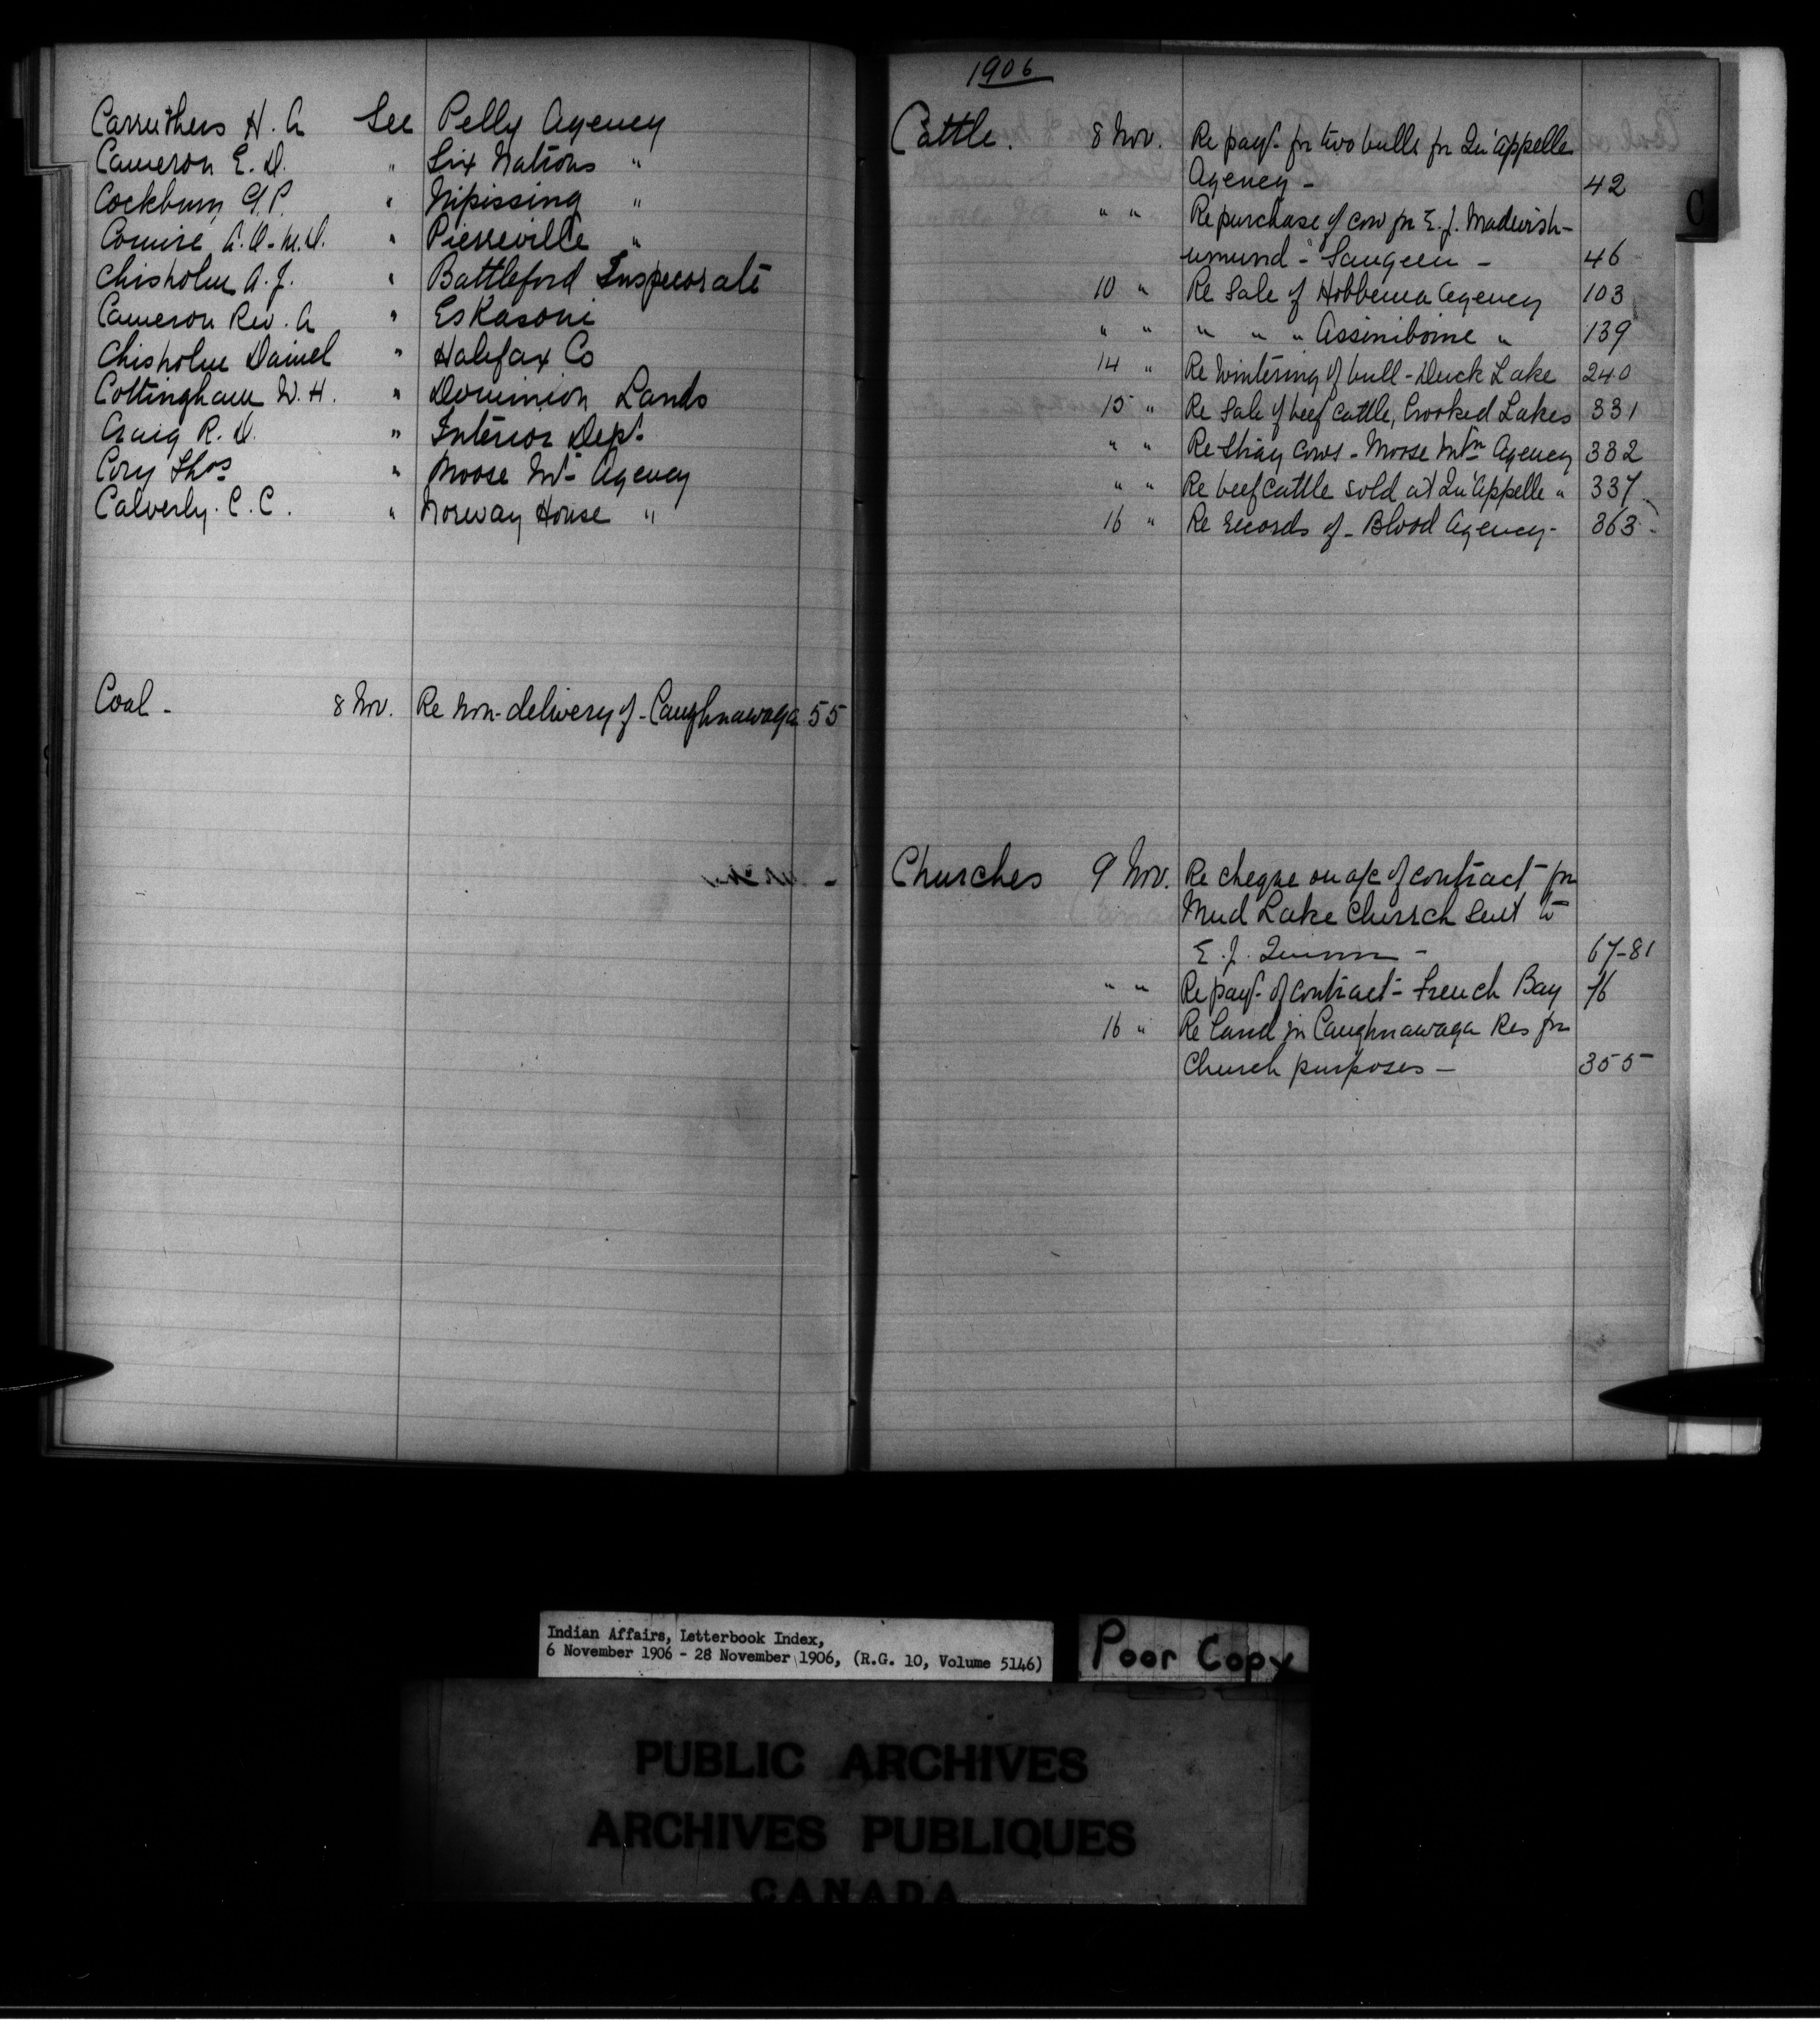 Carruthers H. A See Pelly Agency
Cameron E. D. " Six Nations "
Cockburn G. P. " Nipissing "
Comiré A. O. M.D. " Pierreville "
Chisholm A. J. " Battleford Inspectorate
Cameron Rev. A " Eskasoni
Chisholm Daniel " Halifax Co
Cottingham W. H. " Dominion Lands
Craig R. D. " Interior Dept.
Cory Thos " Moose Mt. Agency
Calverly. C. C. " Norway House "
Coal - 8 Nov. Re Non-delivery of - Caughnawaga 55
1906
Cattle. 8 Nov. Re payt. for two bulls for Qu'Appelle
Agency - 42
" " Re purchase of cow for E. J.
- Saugeen - 46
10 " Re Sale of Hobbema Agency 103
" " " " " Assiniboine " 139
14 " Re Wintering of bull - Duck Lake 240
15 " Re Sale of beef cattle, Crooked Lakes 331
" " Re Stray cows - Moose Mtn Agency 332
" " Re beef cattle sold at Qu'Appelle " 337
16 " Re records of - Blood Agency - 363
Churches 9 Nov. Re cheque on a/c of contract for
Mud Lake Church sent to
E. J. Quinn - 67-81
" " Re payt. of contract - French Bay 76
16 " Re Land in Caughnawaga Res for
Church purposes - 355
C
Indian Affairs, Letterbook Index,
6 November 1906 - 28 November 1906, (R.G. 10, Volume 5146)
Poor Copy
PUBLIC ARCHIVES
ARCHIVES PUBLIQUES
CANADA